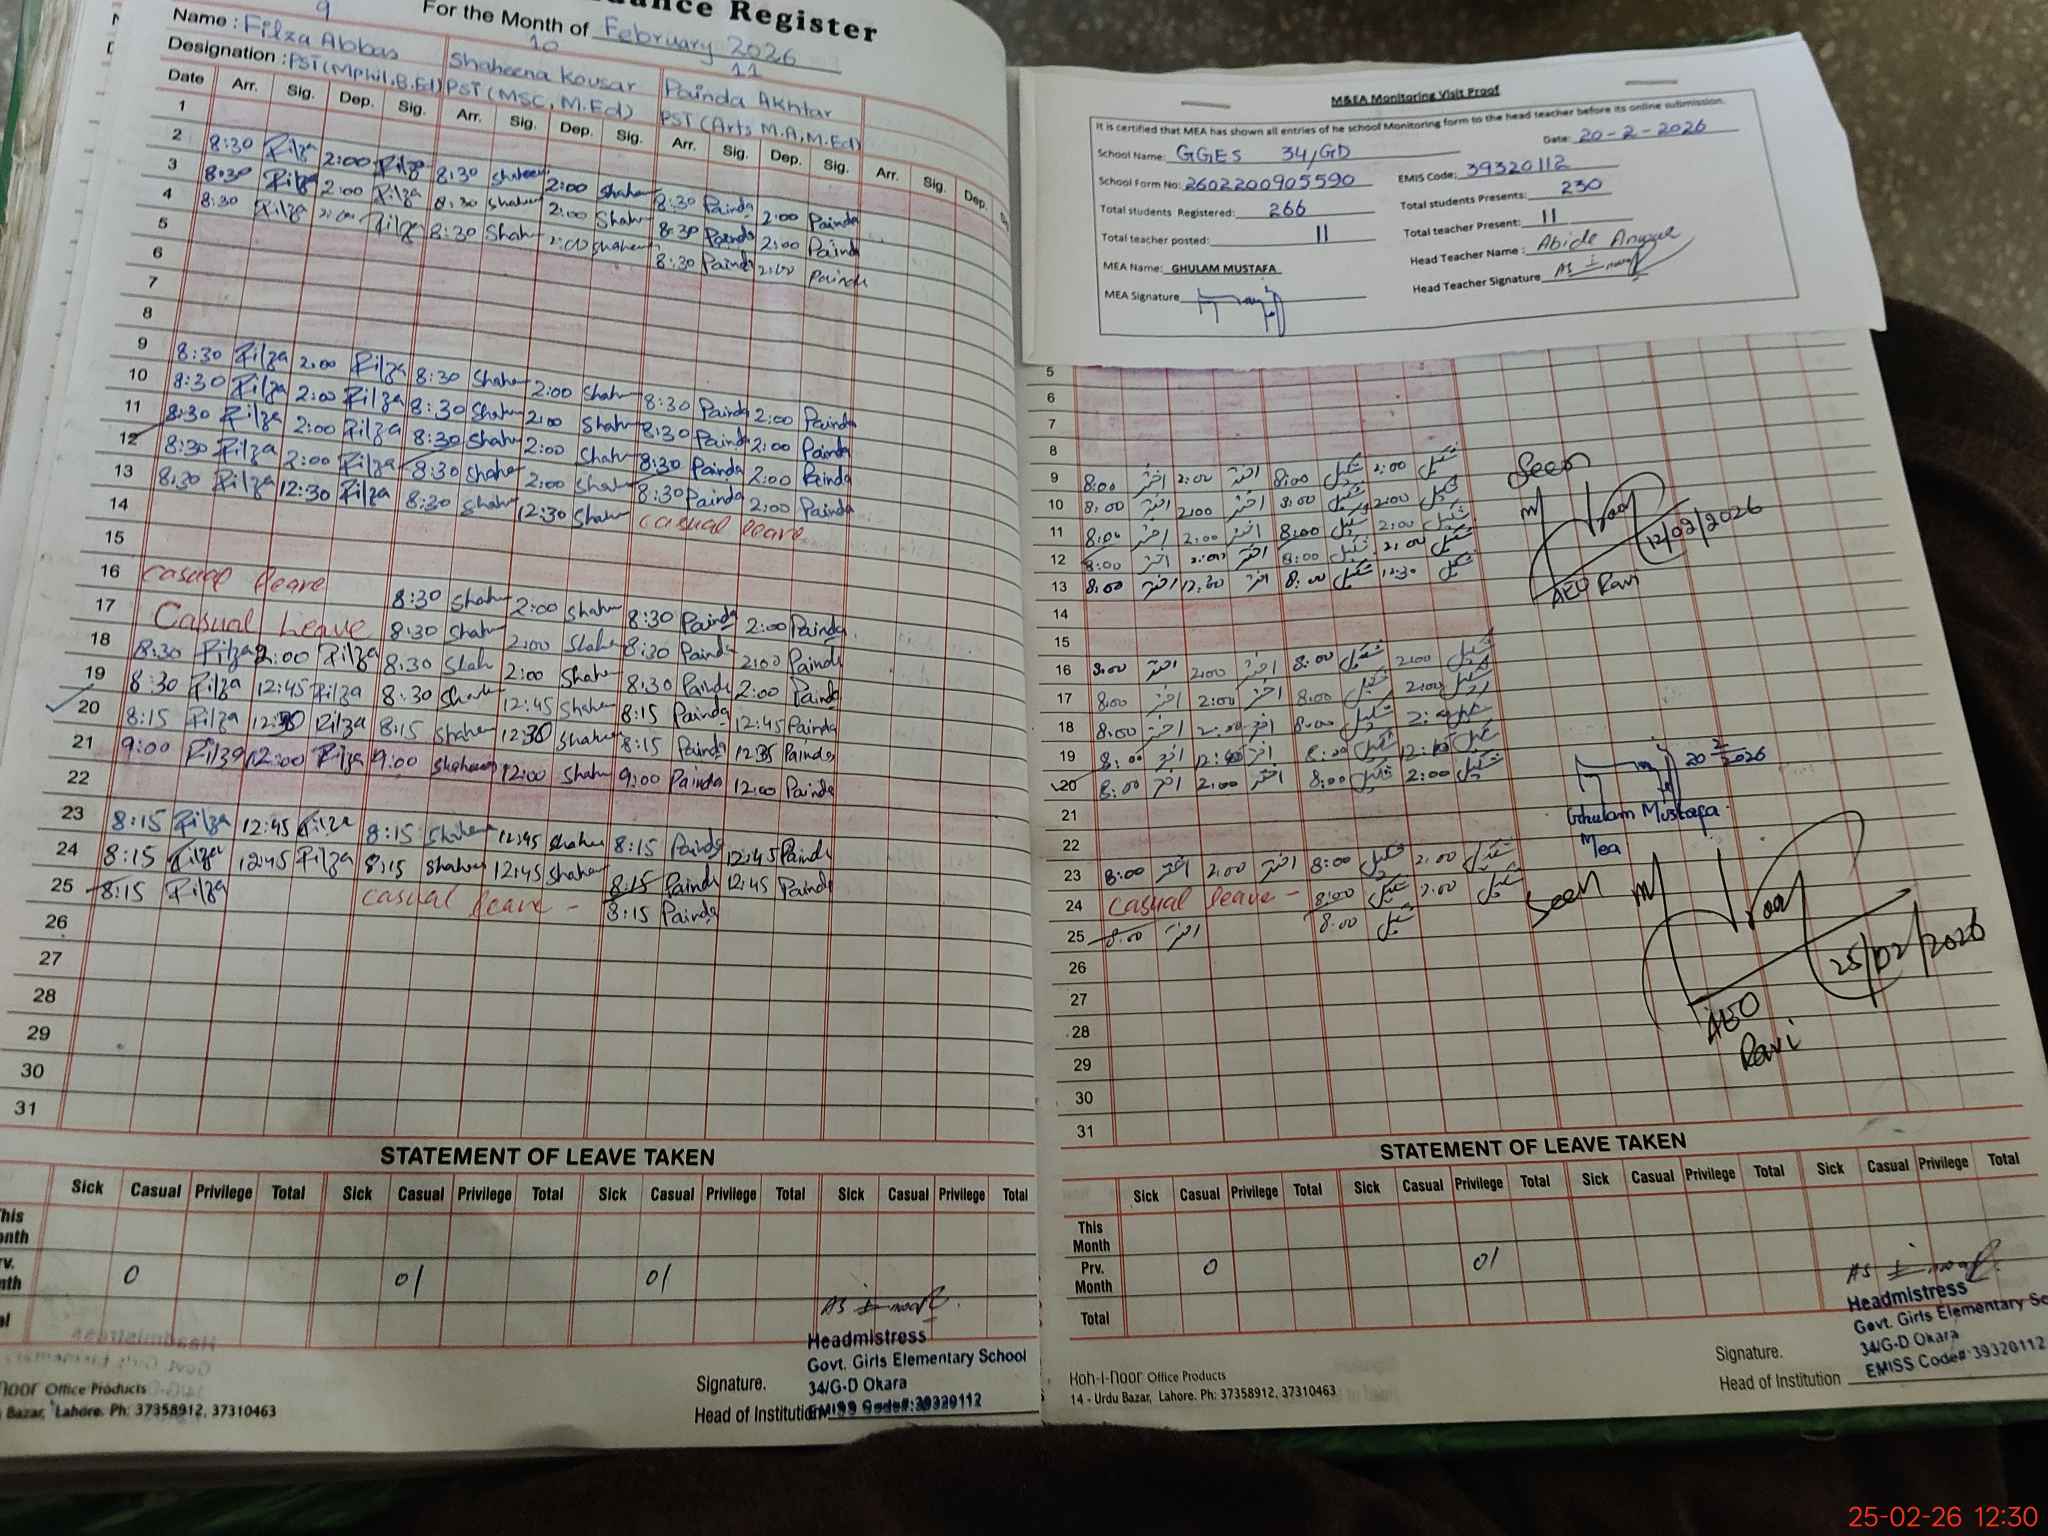 Register
For the Month of February 2026
9
10
11
Name : Filza Abbas
Shaheena Kousar
Painda Akhtar
Designation : PST(Mphil.B.Ed)
PST(MSC, M.Ed)
PST (Arts M.A, M.Ed)
Date Arr. Sig. Dep. Sig. Arr. Sig. Dep. Sig. Arr. Sig. Dep. Sig. Arr. Sig. Dep.
1
2 8:30 Filza 2:00 Filza 8:30 Shaheen 2:00 Shahe 8:30 Painda 2:00 Painda
3 8:30 Filza 2:00 Filza 8:30 Shahe 2:00 Shahe 8:30 Painda 2:00 Painda
4 8:30 Filza 2:00 Filza 8:30 Shahe 2:00 Shahe 8:30 Painda 2:00 Painda
5
6
7
8
9 8:30 Filza 2:00 Filza 8:30 Shahe 2:00 Shahe 8:30 Painda 2:00 Painda
10 8:30 Filza 2:00 Filza 8:30 Shahe 2:00 Shahe 8:30 Painda 2:00 Painda
11 8:30 Filza 2:00 Filza 8:30 Shahe 2:00 Shahe 8:30 Painda 2:00 Painda
12 8:30 Filza 2:00 Filza 8:30 Shahe 2:00 Shahe 8:30 Painda 2:00 Painda
13 8:30 Filza 12:30 Filza 8:30 Shahe 12:30 Shahe casual leave
14
15
16 casual leave 8:30 Shahe 2:00 Shahe 8:30 Painda 2:00 Painda
17 Casual Leave 8:30 Shahe 2:00 Shahe 8:30 Painda 2:00 Painda
18 8:30 Filza 2:00 Filza 8:30 Shah 2:00 Shahe 8:30 Painda 2:00 Painda
19 8:30 Filza 12:45 Filza 8:30 Shahe 12:45 Shahe 8:15 Painda 12:45 Painda
20 8:15 Filza 12:30 Filza 8:15 Shahe 12:30 Shahe 8:15 Painda Painda
21 9:00 Filza 12:00 Filza 9:00 Shaheena 12:00 Shahe 9:00 Painda 12:00 Painda
22
23 8:15 Filza 12:45 Filza 8:15 Shahe 12:45 Shahe 8:15 Painda 12:45 Painda
24 8:15 Filza 12:45 Filza 8:15 Shahee 12:45 Shahe 8:15 Painda 12:45 Painda
25 8:15 Filza casual leave - 8:15 Painda
26
27
28
29
30
31
STATEMENT OF LEAVE TAKEN
Sick Casual Privilege Total Sick Casual Privilege Total Sick Casual Privilege Total Sick Casual Privilege Total
0 01 01
Headmistress
Govt. Girls Elementary School
34/G-D Okara
EMISS Code#:39320112
Signature.
Head of Institution
Office Products
Bazar, Lahore. Ph: 37358912, 37310463
M&EA Monitoring Visit Proof
It is certified that MEA has shown all entries of he school Monitoring form to the head teacher before its online submission.
Date: 20-2-2026
School Name: GGES 34/GD
School Form No: 2602200905590 EMIS Code: 39320112
Total students Registered: 266 Total students Presents: 230
Total teacher posted: 11 Total teacher Present: 11
MEA Name: GHULAM MUSTAFA Head Teacher Name :
MEA Signature Head Teacher Signature
5
6
7
8
9 8:00 اختر 2:00 اختر 8:00 شکیل 2:00 شکیل
10 8:00 اختر 2:00 اختر 8:00 شکیل 2:00 شکیل
11 8:00 اختر 2:00 اختر 8:00 شکیل 2:00 شکیل
12 8:00 اختر 2:00 اختر 8:00 شکیل 2:00 شکیل
13 8:00 اختر 12:30 اختر 8:00 شکیل 12:30 شکیل
Seen
12/02/2026
AEO Ravi
14
15
16 8:00 اختر 2:00 اختر 8:00 شکیل 2:00 شکیل
17 8:00 اختر 2:00 اختر 8:00 شکیل 2:00 شکیل
18 8:00 اختر 2:00 اختر 8:00 شکیل 2:00 شکیل
19 8:00 اختر اختر 8:00 شکیل شکیل
20 8:00 اختر 2:00 اختر 8:00 شکیل 2:00 شکیل
20 2/2026
Ghulam Mustafa.
Mea
21
22
23 8:00 اختر 2:00 اختر 8:00 شکیل 2:00 شکیل
24 casual leave - 8:00 شکیل 2:00 شکیل
25 8:00 اختر 8:00 شکیل
Seen
25/02/2026
AEO
Ravi
26
27
28
29
30
31
STATEMENT OF LEAVE TAKEN
Sick Casual Privilege Total Sick Casual Privilege Total Sick Casual Privilege Total Sick Casual Privilege Total
This Month
Prv. Month 0 01
Total
Headmistress
Govt. Girls Elementary Sc
34/G-D Okara
EMISS Code#:39320112
Signature.
Head of Institution
Koh-i-noor Office Products
14 - Urdu Bazar, Lahore. Ph: 37358912, 37310463
25-02-26 12:30